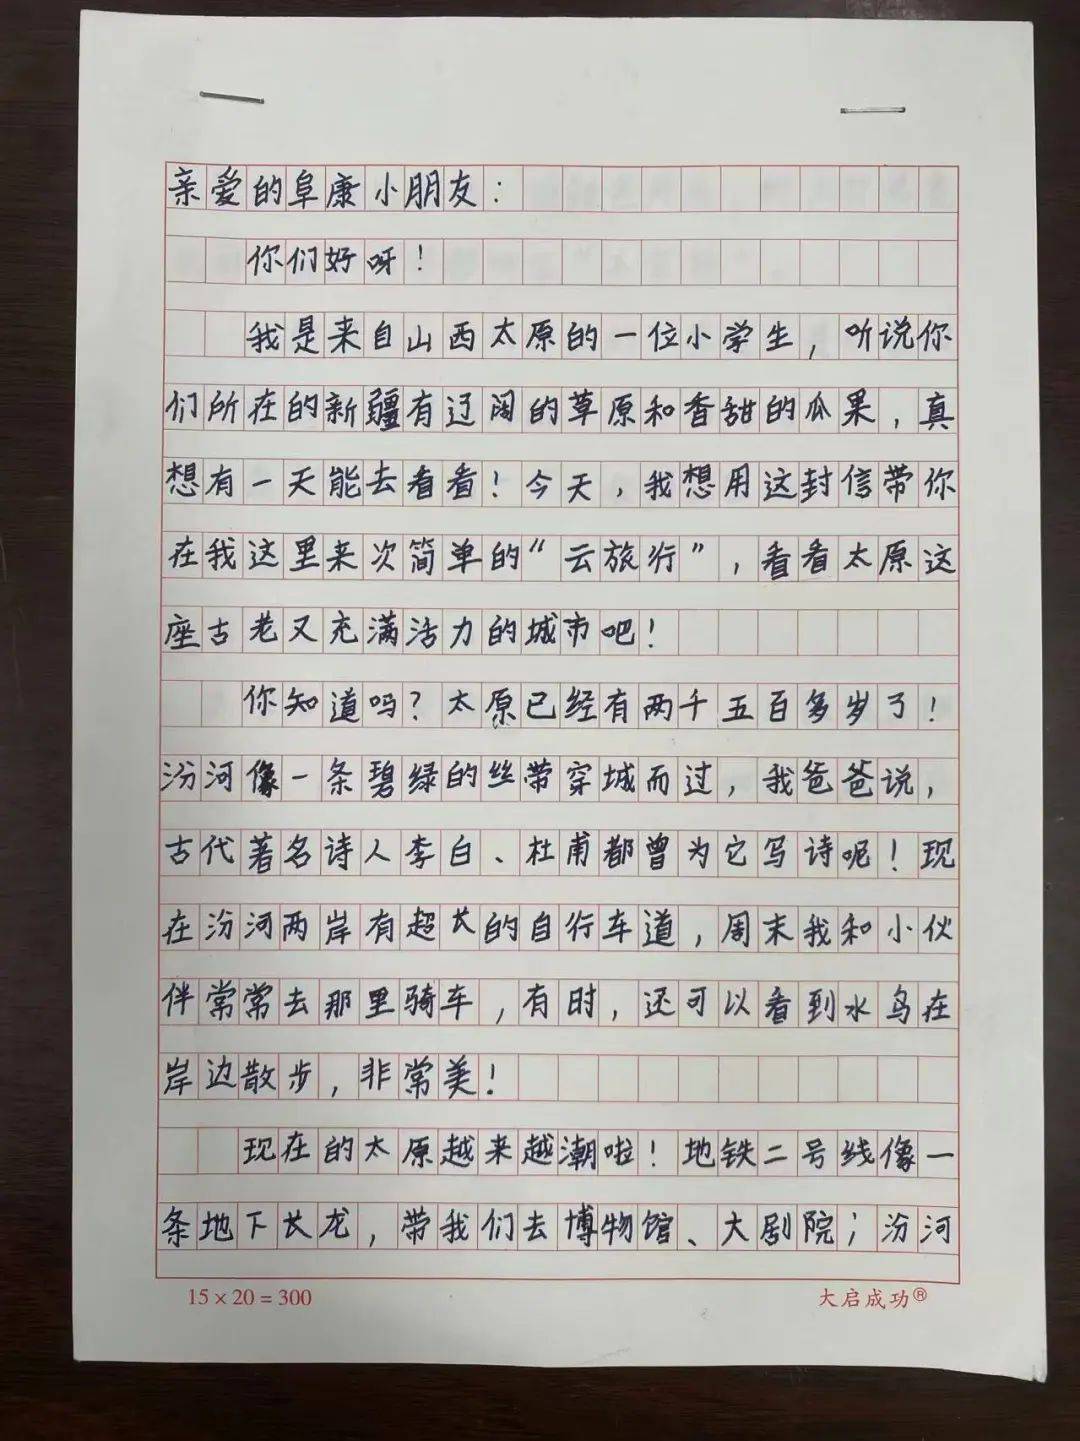 亲爱的阜康小朋友：
你们好呀！
我是来自山西太原的一位小学生，听说你
们所在的新疆有辽阔的草原和香甜的瓜果，真
想有一天能去看看！今天，我想用这封信带你
在我这里来次简单的“云旅行”，看看太原这
座古老又充满活力的城市吧！
你知道吗？太原已经有两千五百多岁了！
汾河像一条碧绿的丝带穿城而过，我爸爸说，
古代著名诗人李白、杜甫都曾为它写诗呢！现
在汾河两岸有超长的自行车道，周末我和小伙
伴常常去那里骑车，有时，还可以看到水鸟在
岸边散步，非常美！
现在的太原越来越潮啦！地铁二号线像一
条地下长龙，带我们去博物馆、大剧院；汾河
15×20=300
大启成功®